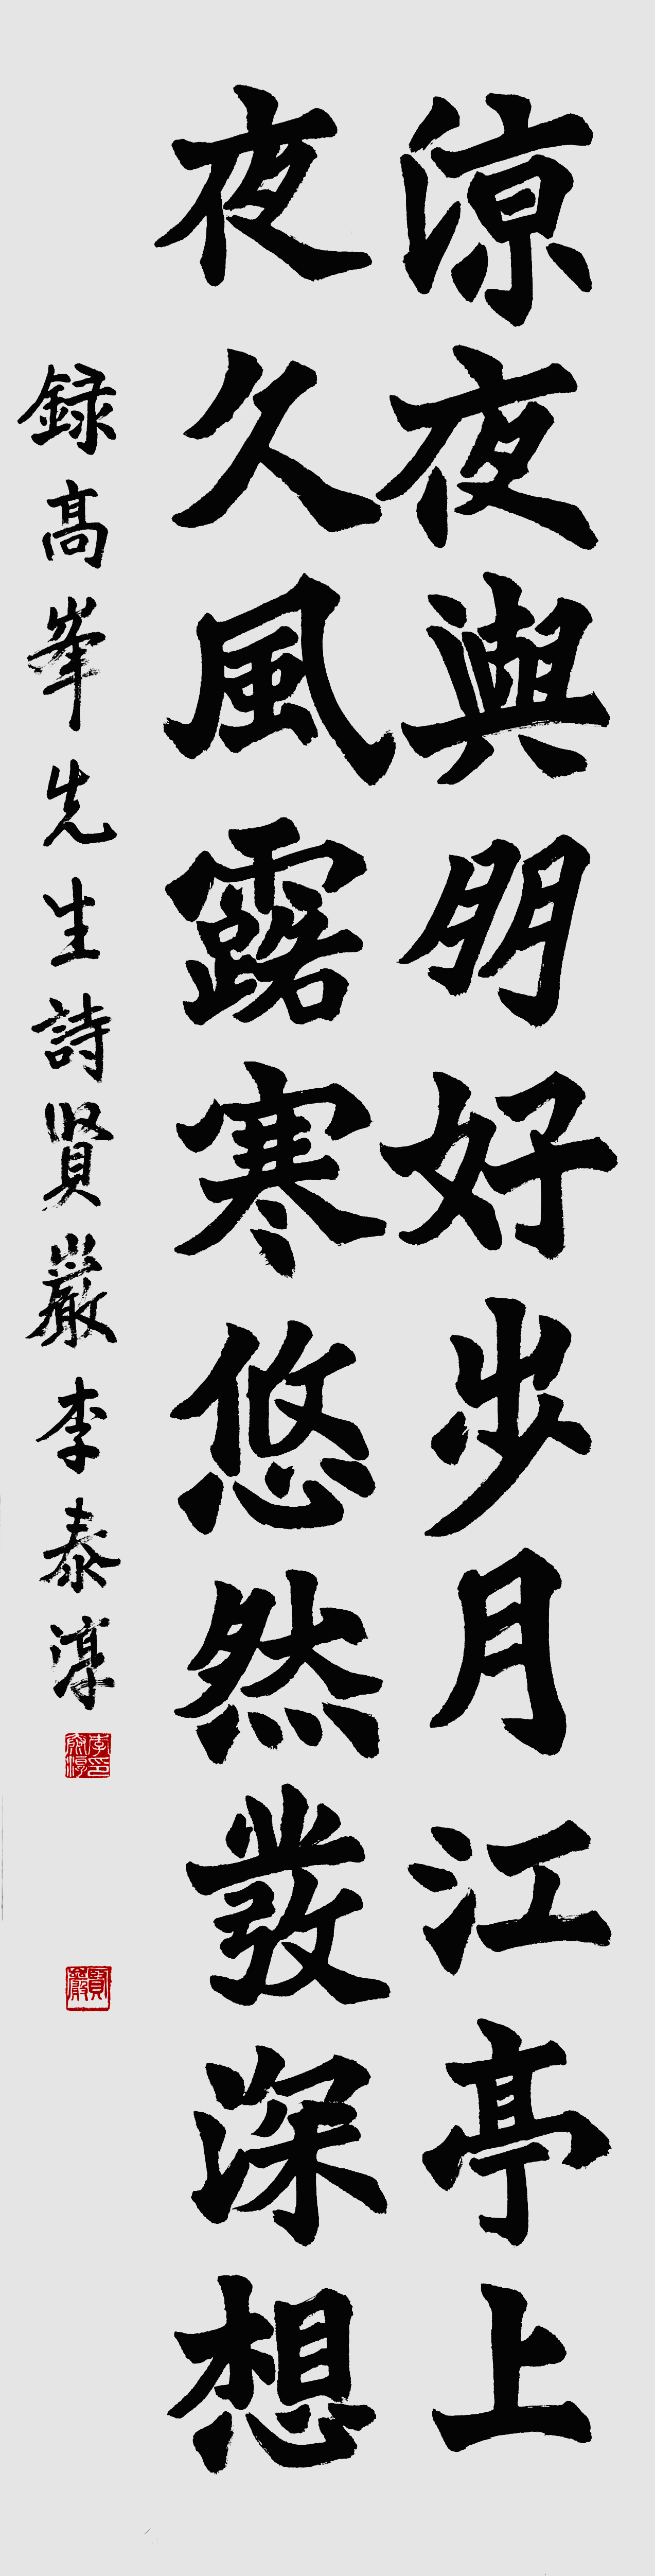 涼夜與朋好步月江亭上
夜久風露寒悠然發深想
録高峯先生詩賢巖李泰淳
李泰淳印
賢巖